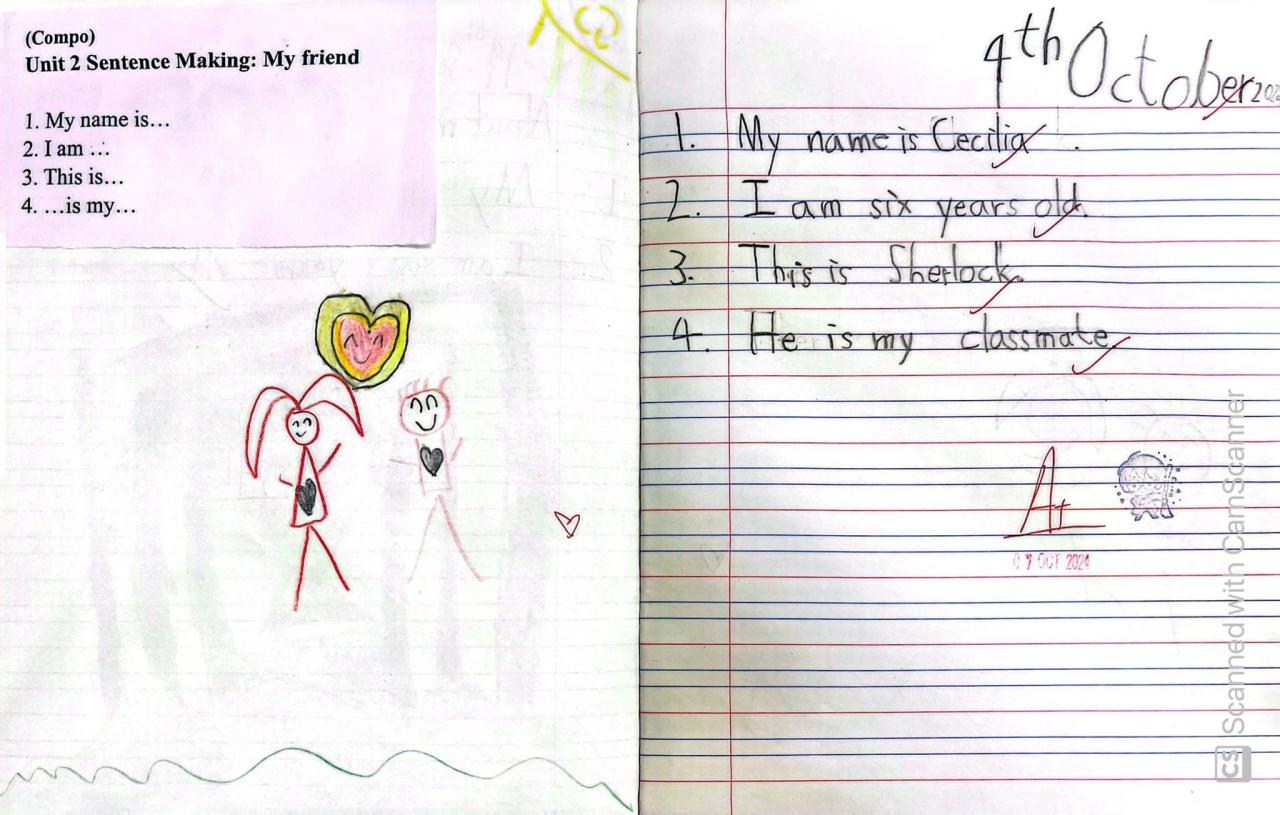 (Compo)
Unit 2 Sentence Making: My friend
1. My name is...
2. I am ...
3. This is...
4. ...is my...
4th October
1. My name is Cecilia.
2. I am six years old.
3. This is Sherlock.
4. He is my classmate.
A+
07 OCT 2024
CS Scanned with CamScanner